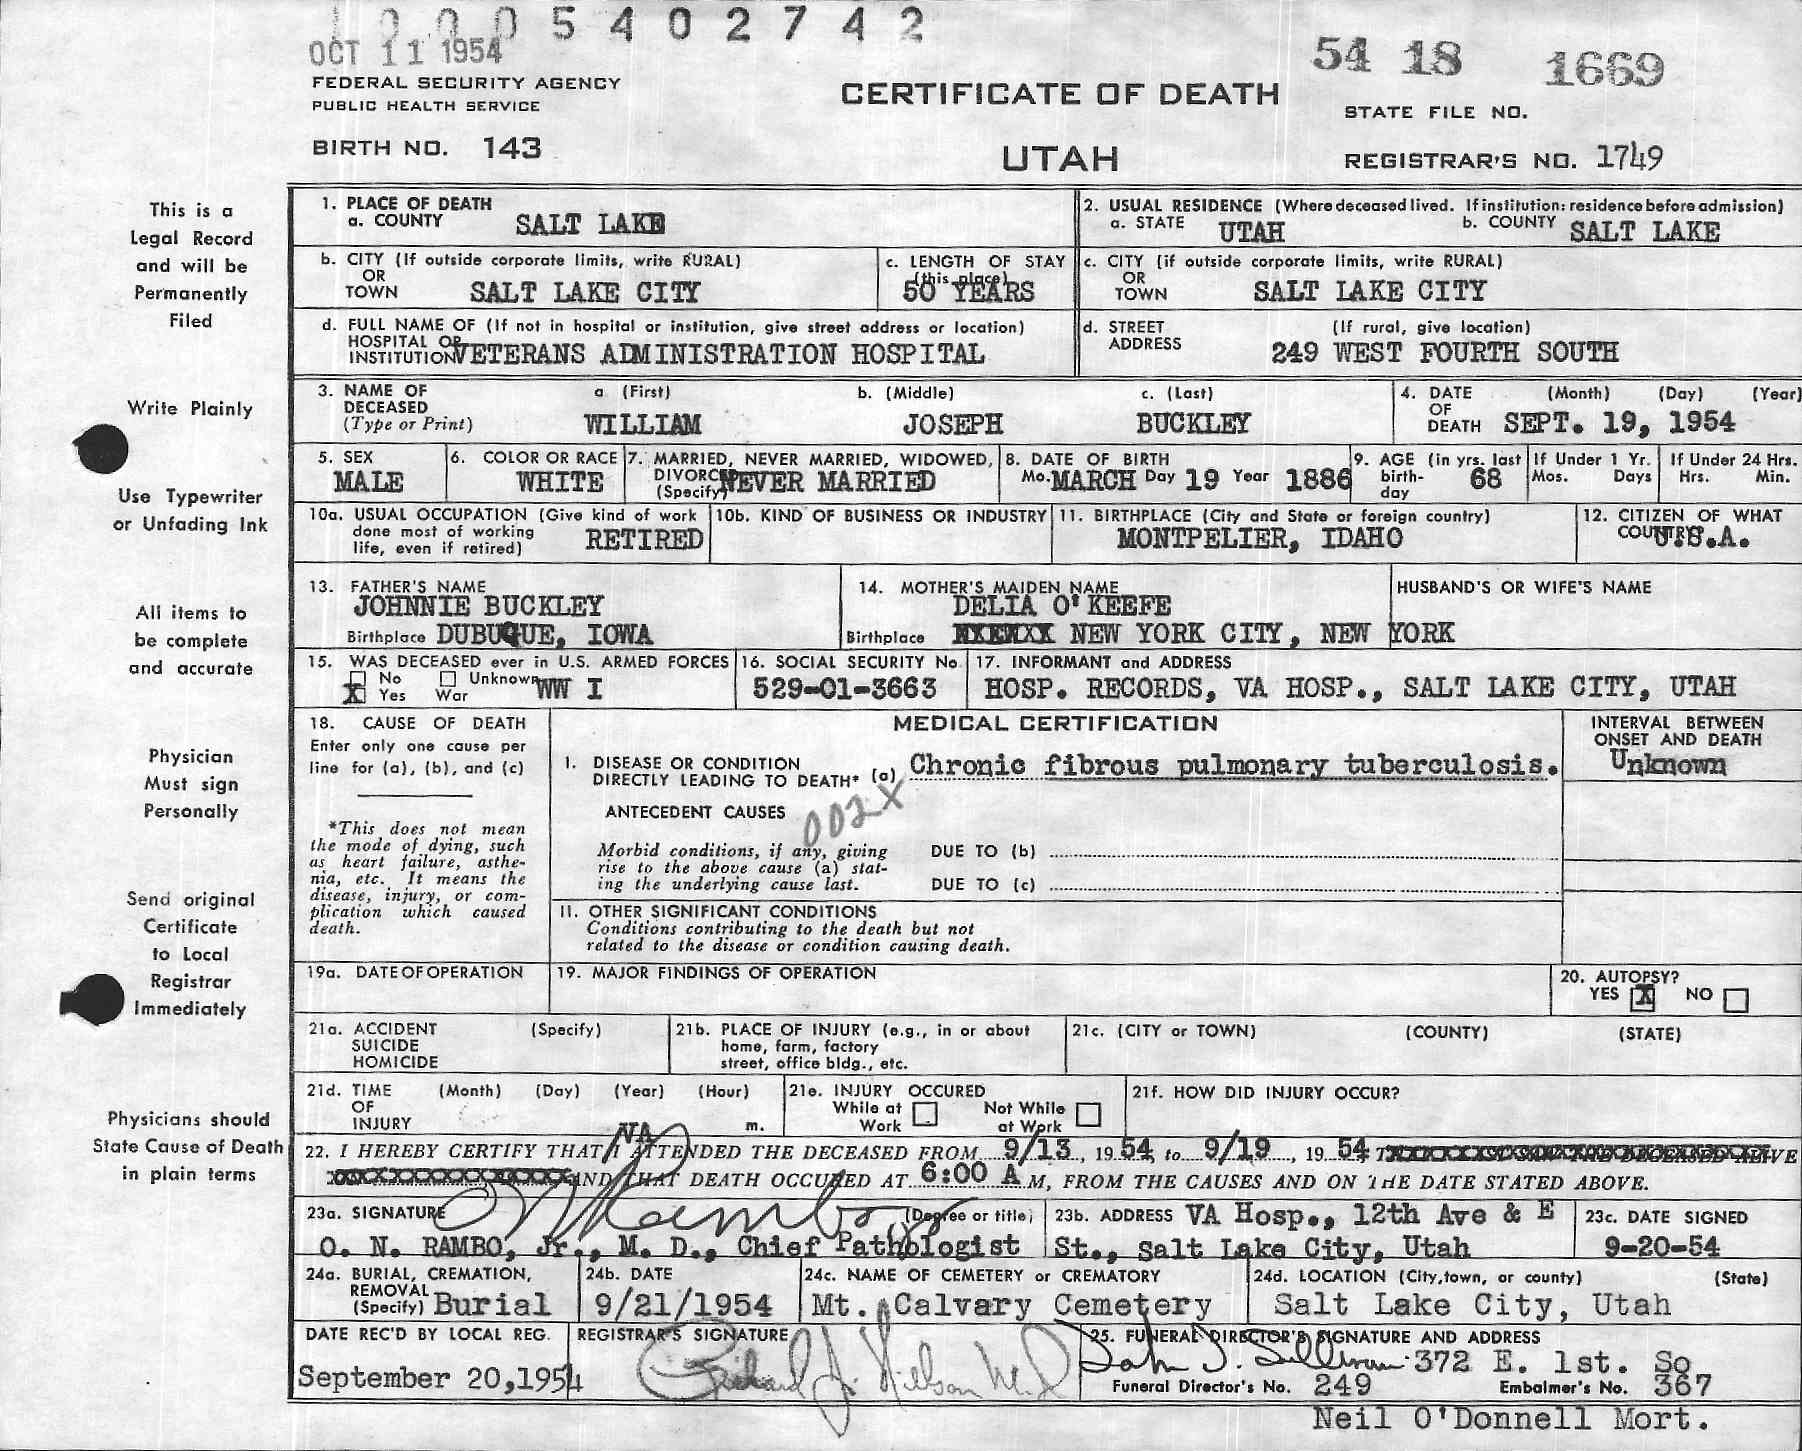 1 0 0 0 5 4 0 2 7 4 2
OCT 11 1954
54 18 1669
FEDERAL SECURITY AGENCY
PUBLIC HEALTH SERVICE
CERTIFICATE OF DEATH
STATE FILE NO.
BIRTH NO. 143
UTAH
REGISTRAR'S NO. 1749
This is a
Legal Record
and will be
Permanently
Filed
Write Plainly
Use Typewriter
or Unfading Ink
All items to
be complete
and accurate
Physician
Must sign
Personally
Send original
Certificate
to Local
Registrar
Immediately
Physicians should
State Cause of Death
in plain terms
1. PLACE OF DEATH
a. COUNTY SALT LAKE
2. USUAL RESIDENCE (Where deceased lived. If institution: residence before admission)
a. STATE UTAH b. COUNTY SALT LAKE
b. CITY (If outside corporate limits, write RURAL)
OR
TOWN SALT LAKE CITY
c. LENGTH OF STAY
(this place)
50 YEARS
c. CITY (if outside corporate limits, write RURAL)
OR
TOWN SALT LAKE CITY
d. FULL NAME OF (If not in hospital or institution, give street address or location)
HOSPITAL OR
INSTITUTION VETERANS ADMINISTRATION HOSPITAL
d. STREET (If rural, give location)
ADDRESS 249 WEST FOURTH SOUTH
3. NAME OF a (First) b. (Middle) c. (Last)
DECEASED
(Type or Print) WILLIAM JOSEPH BUCKLEY
4. DATE (Month) (Day) (Year)
OF
DEATH SEPT. 19, 1954
5. SEX
MALE
6. COLOR OR RACE
WHITE
7. MARRIED, NEVER MARRIED, WIDOWED,
DIVORCED NEVER MARRIED
(Specify)
8. DATE OF BIRTH
Mo. MARCH Day 19 Year 1886
9. AGE (in yrs. last
birth-
day 68
If Under 1 Yr.
Mos. Days
If Under 24 Hrs.
Hrs. Min.
10a. USUAL OCCUPATION (Give kind of work
done most of working
life, even if retired) RETIRED
10b. KIND OF BUSINESS OR INDUSTRY
11. BIRTHPLACE (City and State or foreign country)
MONTPELIER, IDAHO
12. CITIZEN OF WHAT
COUNTRY U.S.A.
13. FATHER'S NAME
JOHNNIE BUCKLEY
Birthplace DUBUQUE, IOWA
14. MOTHER'S MAIDEN NAME
DELIA O'KEEFE
Birthplace NEW YORK CITY, NEW YORK
HUSBAND'S OR WIFE'S NAME
15. WAS DECEASED ever in U.S. ARMED FORCES
No Unknown
X Yes War WW I
16. SOCIAL SECURITY No.
529-01-3663
17. INFORMANT and ADDRESS
HOSP. RECORDS, VA HOSP., SALT LAKE CITY, UTAH
18. CAUSE OF DEATH
Enter only one cause per
line for (a), (b), and (c)
*This does not mean
the mode of dying, such
as heart failure, asthe-
nia, etc. It means the
disease, injury, or com-
plication which caused
death.
MEDICAL CERTIFICATION
1. DISEASE OR CONDITION
DIRECTLY LEADING TO DEATH* (a) Chronic fibrous pulmonary tuberculosis.
ANTECEDENT CAUSES
002X
Morbid conditions, if any, giving
rise to the above cause (a) stat-
ing the underlying cause last.
DUE TO (b)
DUE TO (c)
11. OTHER SIGNIFICANT CONDITIONS
Conditions contributing to the death but not
related to the disease or condition causing death.
INTERVAL BETWEEN
ONSET AND DEATH
Unknown
19a. DATE OF OPERATION
19. MAJOR FINDINGS OF OPERATION
20. AUTOPSY?
YES X NO
21a. ACCIDENT (Specify)
SUICIDE
HOMICIDE
21b. PLACE OF INJURY (e.g., in or about
home, farm, factory
street, office bldg., etc.
21c. (CITY or TOWN) (COUNTY) (STATE)
21d. TIME (Month) (Day) (Year) (Hour)
OF
INJURY m.
21e. INJURY OCCURED
While at Work
Not While at Work
21f. HOW DID INJURY OCCUR?
VA
22. I HEREBY CERTIFY THAT I ATTENDED THE DECEASED FROM 9/13, 1954 to 9/19, 1954
AND THAT DEATH OCCURED AT 6:00 A M, FROM THE CAUSES AND ON THE DATE STATED ABOVE.
23a. SIGNATURE O N Rambo Jr (Degree or title)
O. N. RAMBO, Jr., M. D., Chief Pathologist
23b. ADDRESS VA Hosp., 12th Ave & E
St., Salt Lake City, Utah
23c. DATE SIGNED
9-20-54
24a. BURIAL, CREMATION,
REMOVAL
(Specify) Burial
24b. DATE
9/21/1954
24c. NAME OF CEMETERY or CREMATORY
Mt. Calvary Cemetery
24d. LOCATION (City, town, or county) (State)
Salt Lake City, Utah
DATE REC'D BY LOCAL REG.
September 20,1954
REGISTRAR'S SIGNATURE
Richard J. Nielson M.D
25. FUNERAL DIRECTOR'S SIGNATURE AND ADDRESS
John J. Sullivan 372 E. 1st. So
Funeral Director's No. 249 Embalmer's No. 367
Neil O'Donnell Mort.